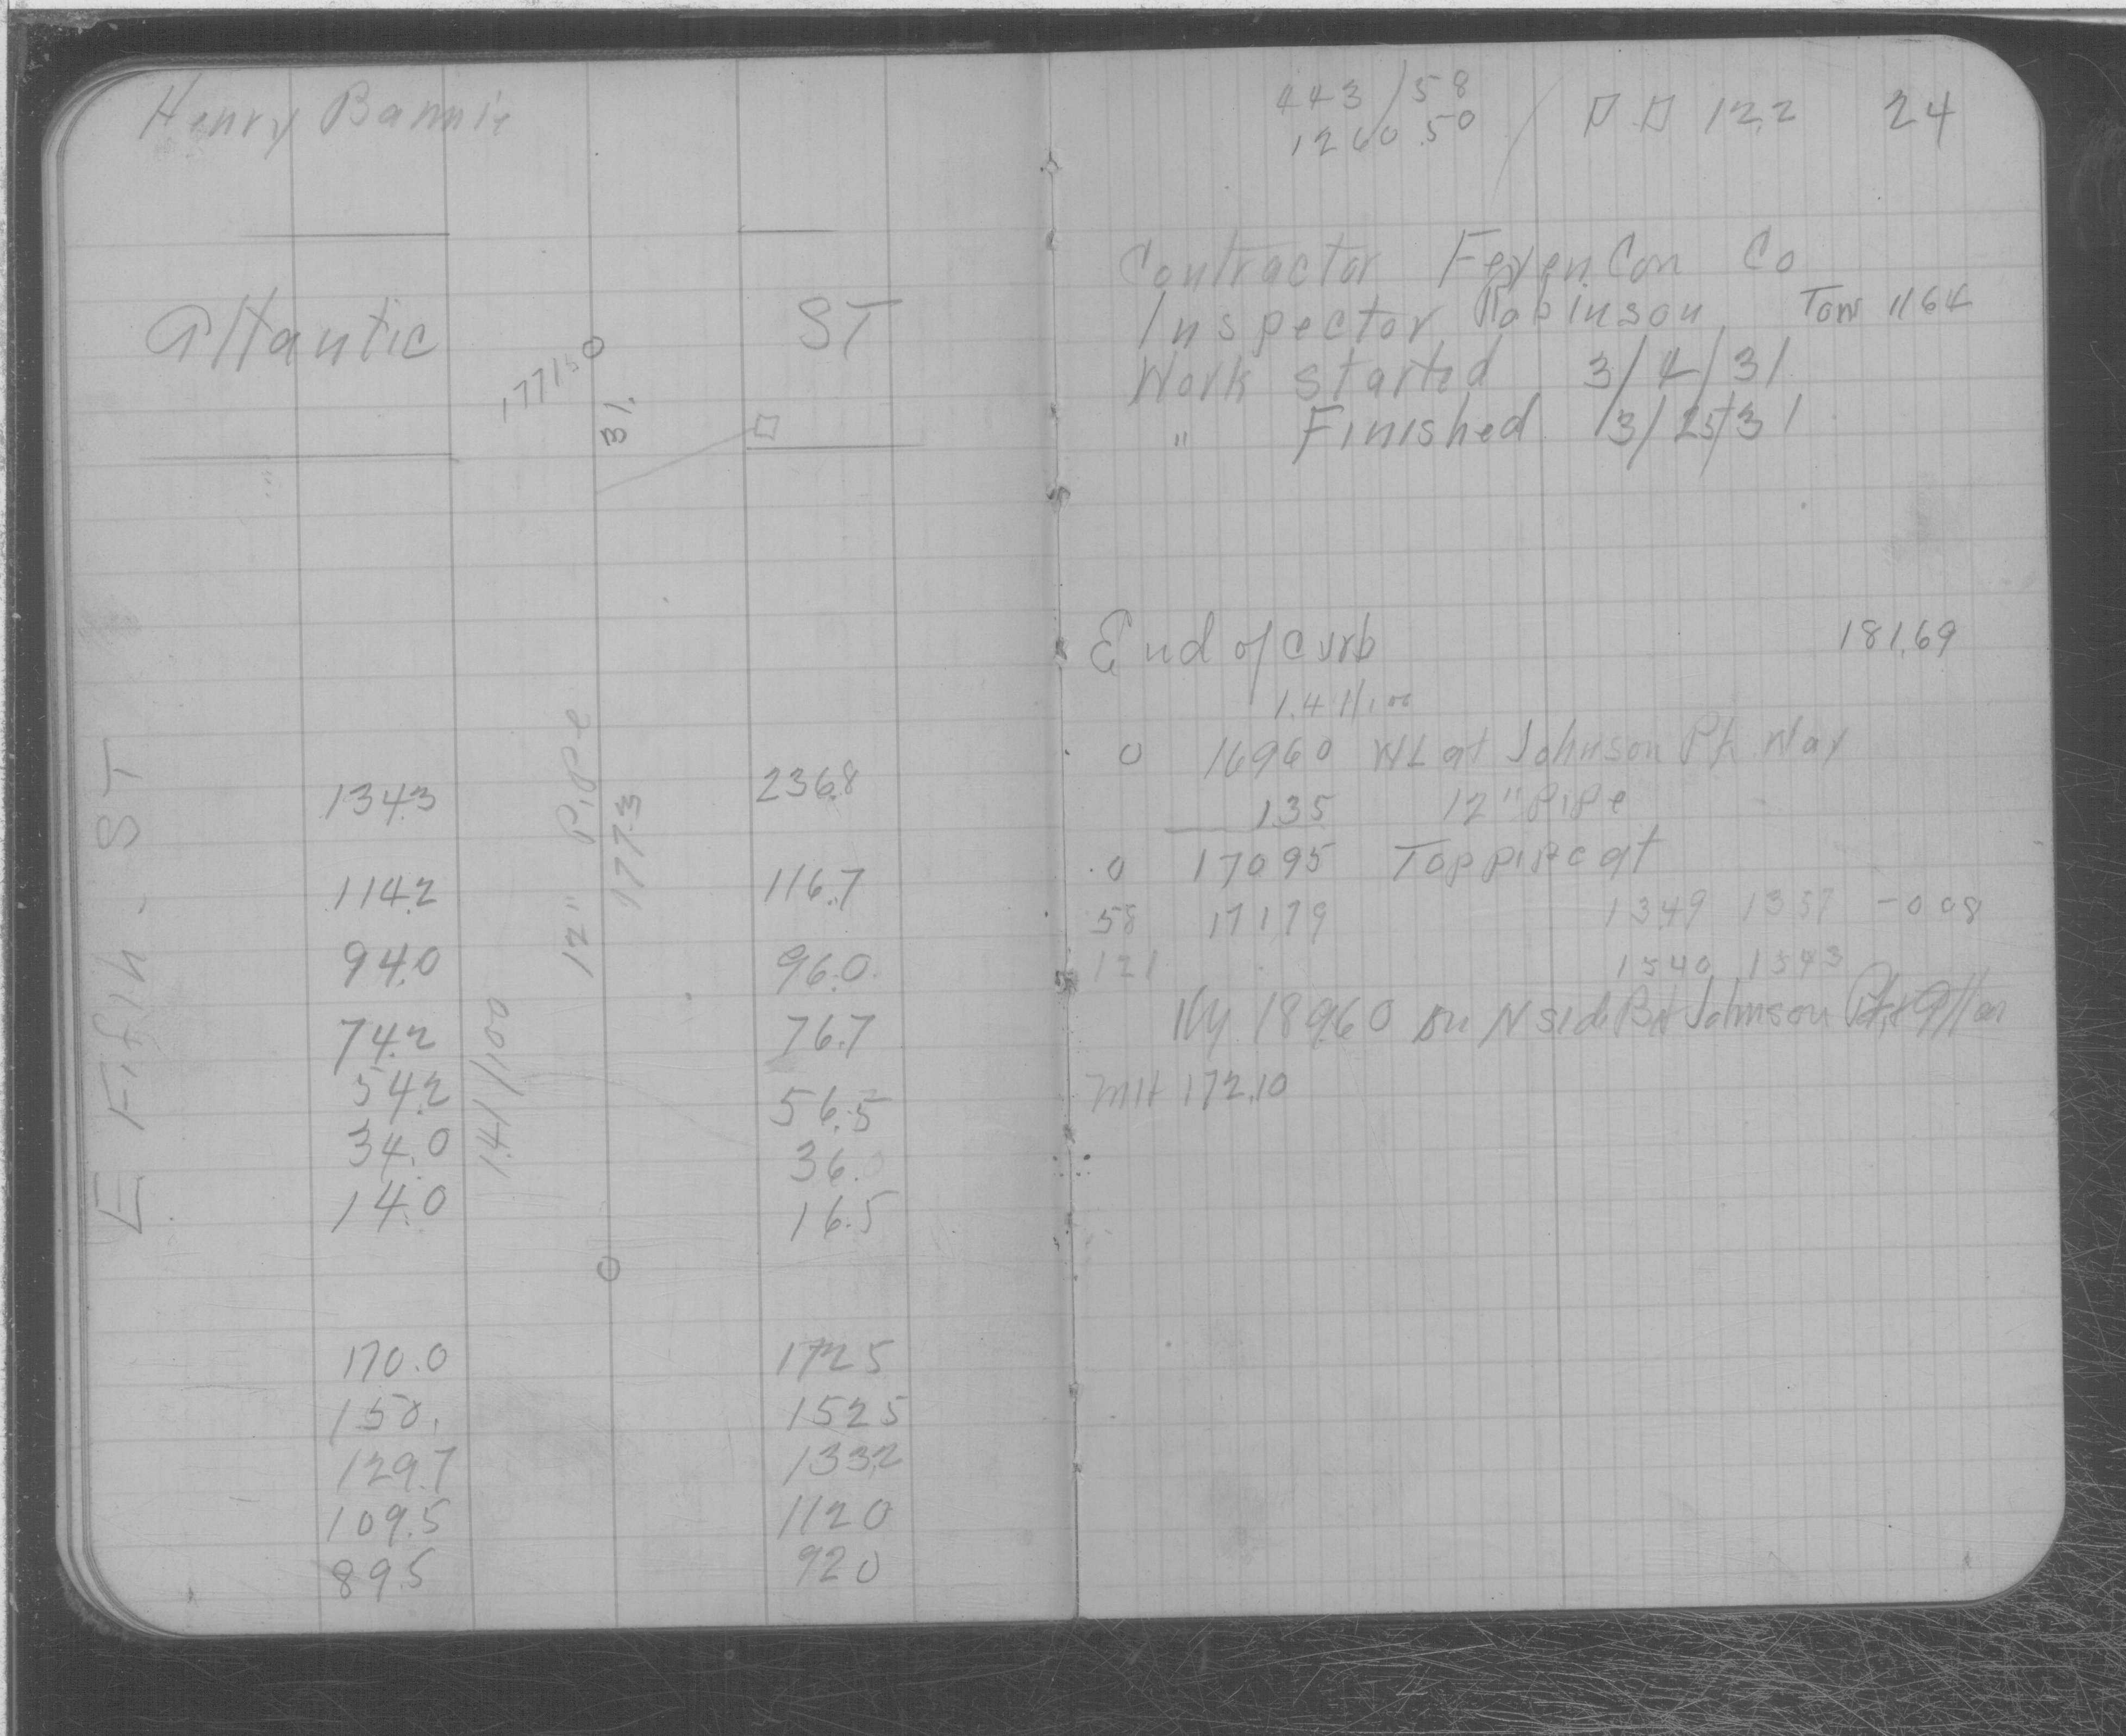 Henry Bannie
Atlantic ST
177.15
31.
E Fifth. ST
12" Pipe
177.3
1.41/100
134.3 236.8
114.2 116.7
94.0 96.0
74.2 76.7
54.2 56.5
34.0 36.0
14.0 16.5
170.0 172 5
150. 152 5
129.7 133.2
109.5 112 0
89.5 92 0
443/58
1260.50
122 24
Contractor Con Co
Inspector Robinson 1164
Work started 3/4/31
" Finished 3/25/31
End of curb 181.69
1.41/100
0 169 60 WL at Johnson Pk Way
1 35 12" Pipe
0 170 95 Top pipe at
58 171 79 1349 1357 -0 08
121 1540 1543
Hy 189.60 on N side Bet Johnson
MH 172.10